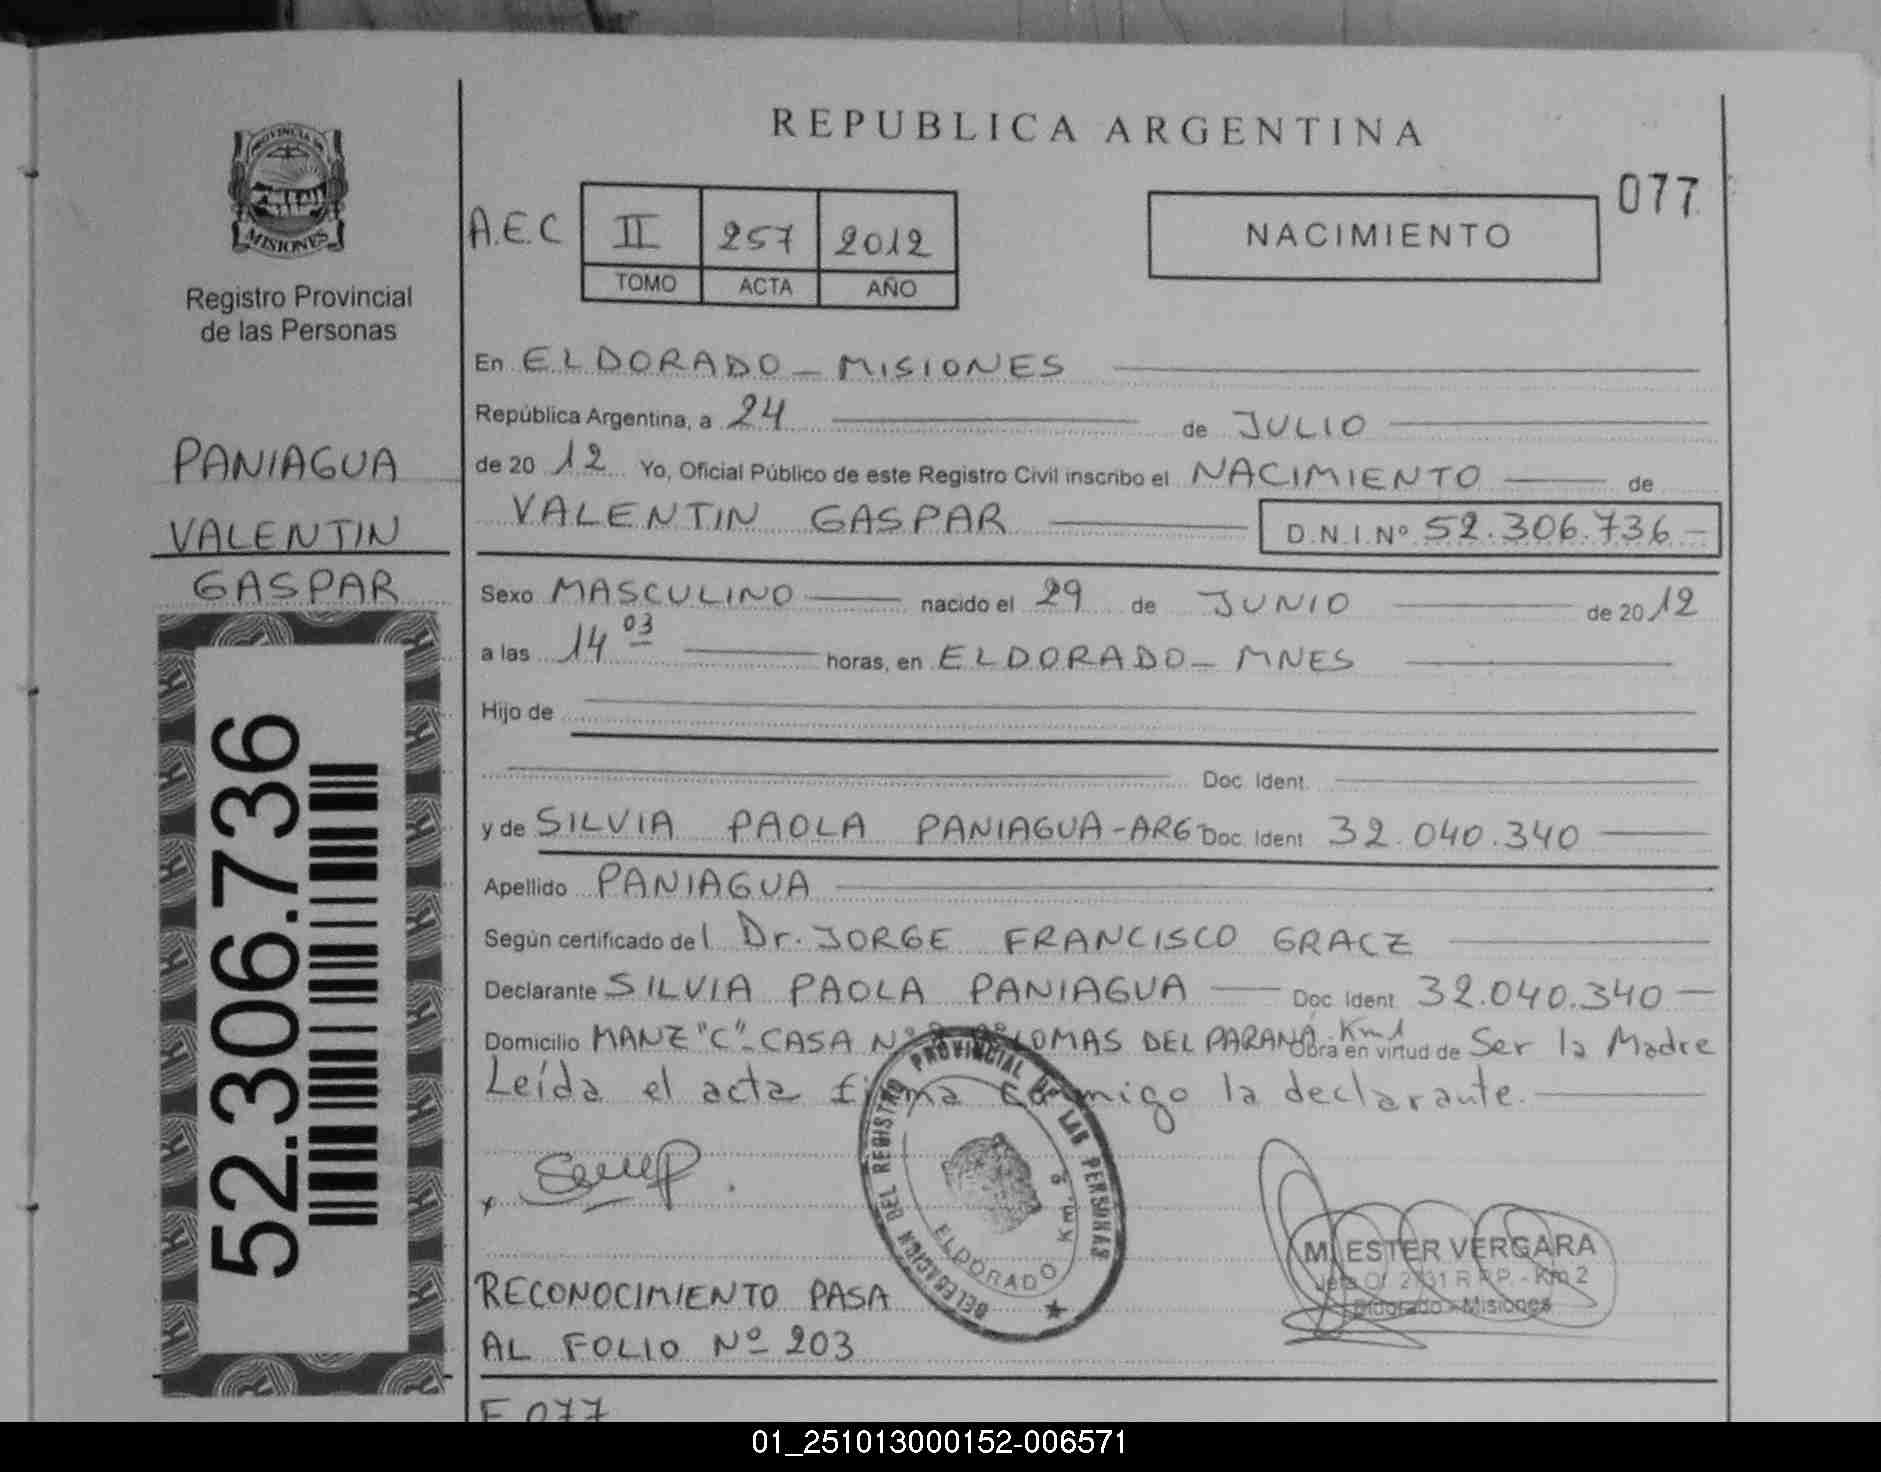 REPUBLICA ARGENTINA
077
PROVINCIA DE
MISIONES
Registro Provincial
de las Personas
A.E.C II 257 2012
TOMO ACTA AÑO
NACIMIENTO
En ELDORADO - MISIONES
República Argentina, a 24 de JULIO
de 20 12 Yo, Oficial Público de este Registro Civil inscribo el NACIMIENTO de
VALENTIN GASPAR D.N.I.Nº 52.306.736-
PANIAGUA
VALENTIN
GASPAR
52.306.736
Sexo MASCULINO nacido el 29 de JUNIO de 20 12
a las 14 03 horas, en ELDORADO - MNES
Hijo de
Doc. Ident.
y de SILVIA PAOLA PANIAGUA-ARG- Doc. Ident 32.040.340
Apellido PANIAGUA
Según certificado del Dr. JORGE FRANCISCO GRACZ
Declarante SILVIA PAOLA PANIAGUA Doc. Ident 32.040.340
Domicilio MANZ "C"- CASA Nº LOMAS DEL PARANÁ- Km 1 Obra en virtud de Ser la Madre
Leída el acta firma conmigo la declarante.
DELEGACION DEL REGISTRO PROVINCIAL DE LAS PERSONAS
ELDORADO Km. 9
M. ESTER VERGARA
R.P.P. - Km 2
Eldorado - Misiones
RECONOCIMIENTO PASA
AL FOLIO Nº 203
F 077
01_251013000152-006571